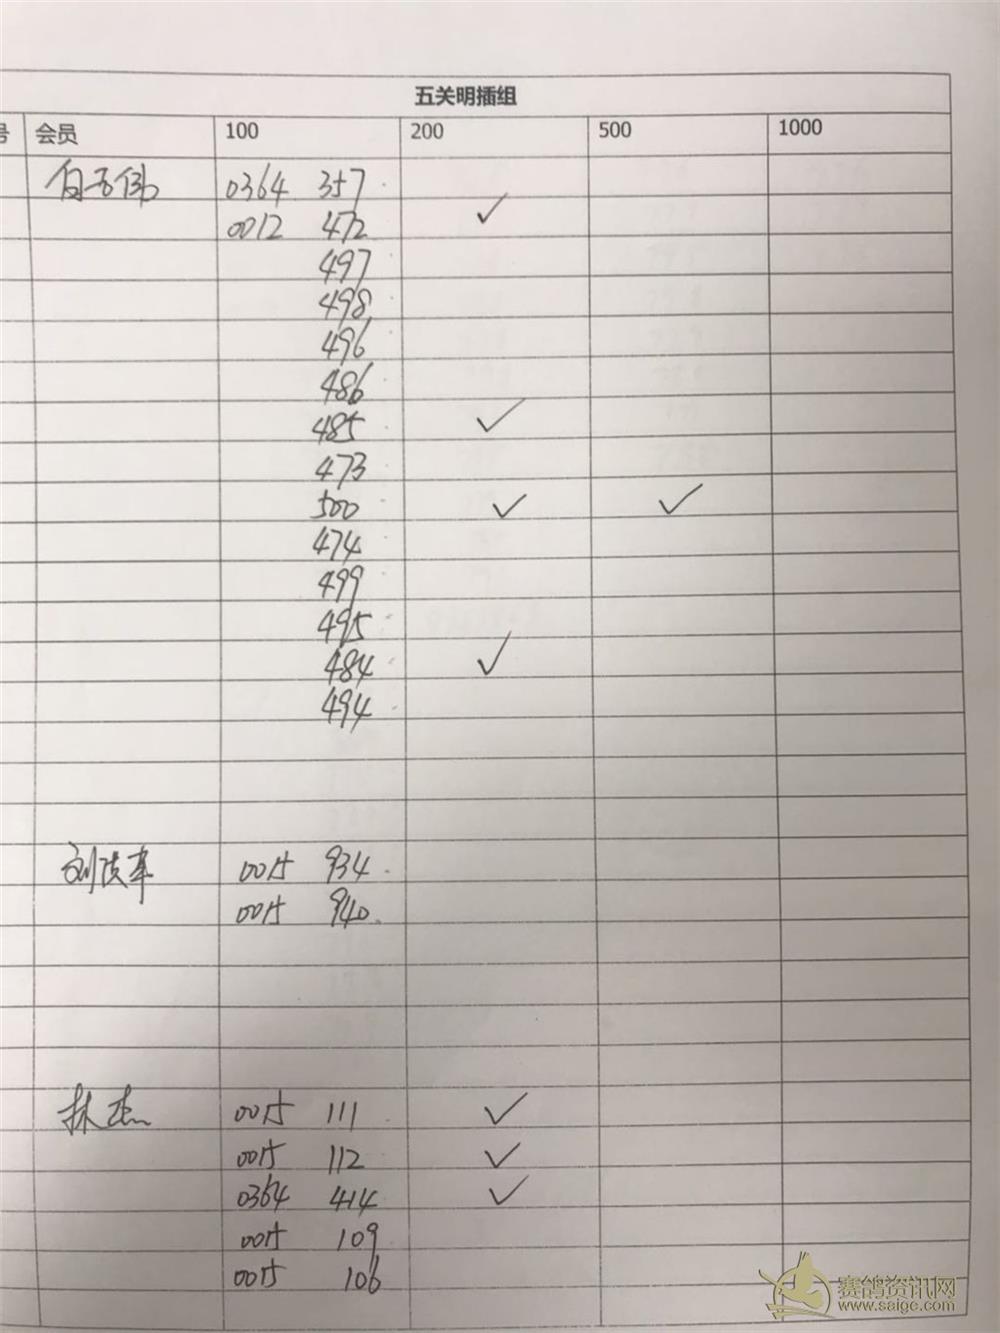 五关明插组
号 会员 100 200 500 1000
0364 357
0012 472 ✓
497
498
496
486
485 ✓
473
500 ✓ ✓
474
499
495
484 ✓
494
0015 934
0015 940
林杰 0015 111 ✓
0015 112 ✓
0364 414 ✓
0015 109
0015 106
赛鸽资讯网
www.saige.com